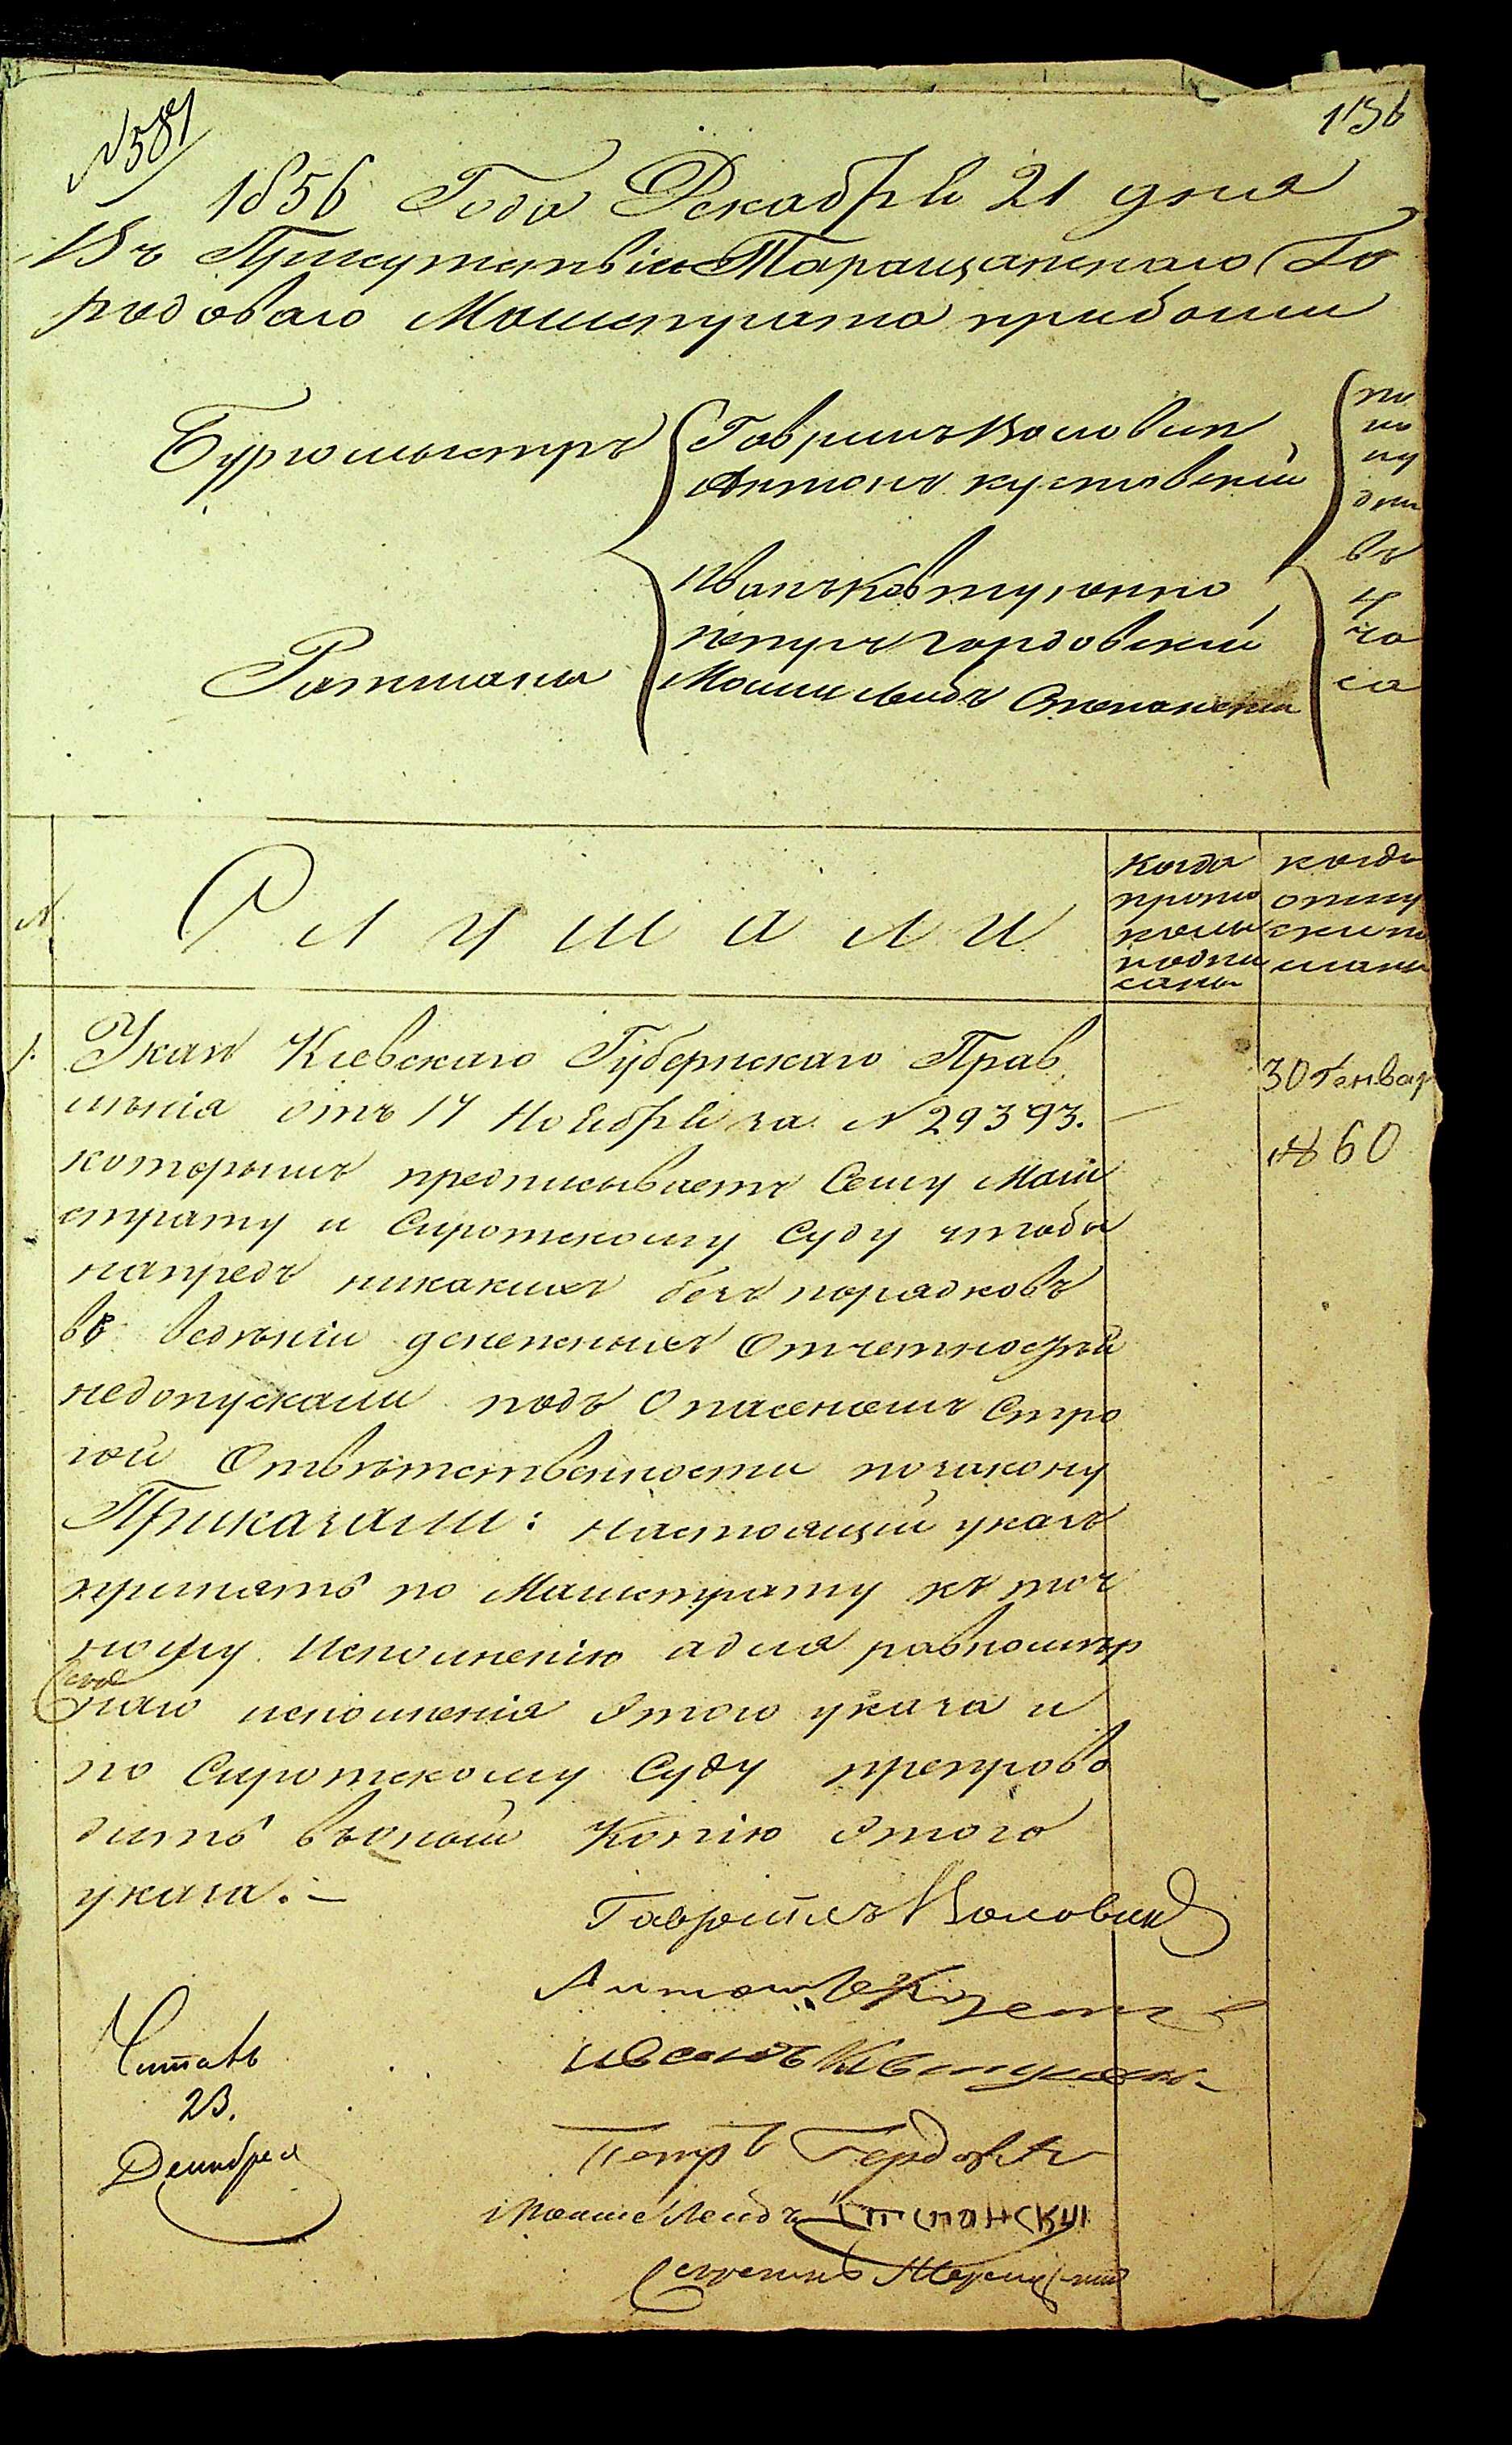 № 581
136
1856 Года Декабря 21 дня
Въ Присутствіе Таращанскаго Го
родоваго Магистрата прибыли
Бургомыстръ
Гаврилъ Воловик
Антонъ кустовскій
Иванъ Ковтуненко
петръ гордовскій
Ратманы
Мошко Лейдъ Степанскій
по
по
лу
дни
въ
4
ча
са
№
Слушали
Когда
прото
колы
подпи
саны
когда
отпу
ски по
сланы
1. Указъ Кіевскаго Губернскаго Прав
лѣнія отъ 17 Ноября за № 29393.
которымъ предписываетъ Сему Маги
страту и Сиротскому Суду чтобы
напредъ никакихъ безъ порядковъ
въ веденіи денежныхъ Отчетностей
недопускали подъ Опасеніемъ Стро
гой Отвѣтственности позакону
Приказали: настоящій указъ
принять по Магистрату къ точ
ному Исполненію а для равномѣр
наго исполненія этого указа и
по Сиротскому Суду препрово
дить въ оный Копію этого
указа. –
30 Генвар
№ 60
Гавриилъ Воловик
Антонъ Куст
Иванъ Ковтунен
Петръ Гордов
Мошко Лейдъ Степанскій
Читалъ
23.
Декабря